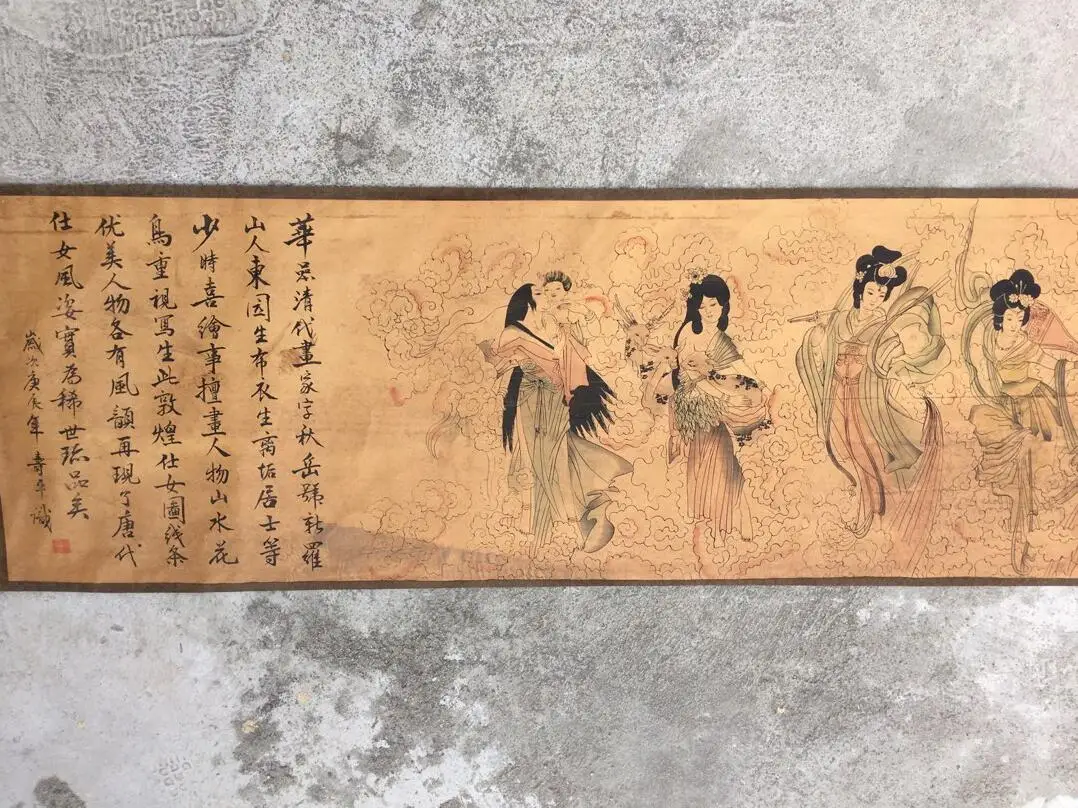 華喦清代畫家字秋岳號新羅
山人東园生布衣生离垢居士等
少時喜繪事擅畫人物山水花
鳥重視寫生此敦煌仕女圖线条
优美人物各有風韻再現了唐代
仕女風姿實為稀世珍品矣
歲次庚辰年 壽平識